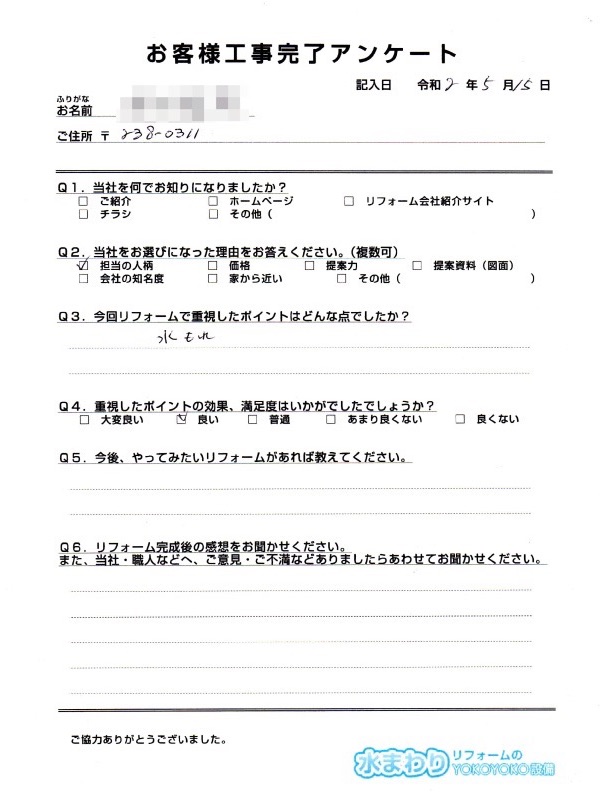 お客様工事完了アンケート
記入日 令和2年5月15日
ふりがな
お名前
ご住所 〒 238-0311
Q1. 当社を何でお知りになりましたか?
□ ご紹介 □ ホームページ □ リフォーム会社紹介サイト
□ チラシ □ その他( )
Q2. 当社をお選びになった理由をお答えください。(複数可)
☑ 担当の人柄 □ 価格 □ 提案力 □ 提案資料(図面)
□ 会社の知名度 □ 家から近い □ その他( )
Q3. 今回リフォームで重視したポイントはどんな点でしたか?
水もれ
Q4. 重視したポイントの効果、満足度はいかがでしたでしょうか?
□ 大変良い ☑ 良い □ 普通 □ あまり良くない □ 良くない
Q5. 今後、やってみたいリフォームがあれば教えてください。
Q6. リフォーム完成後の感想をお聞かせください。
また、当社・職人などへ、ご意見・ご不満などありましたらあわせてお聞かせください。
ご協力ありがとうございました。
水まわりリフォームの
YOKOYOKO設備